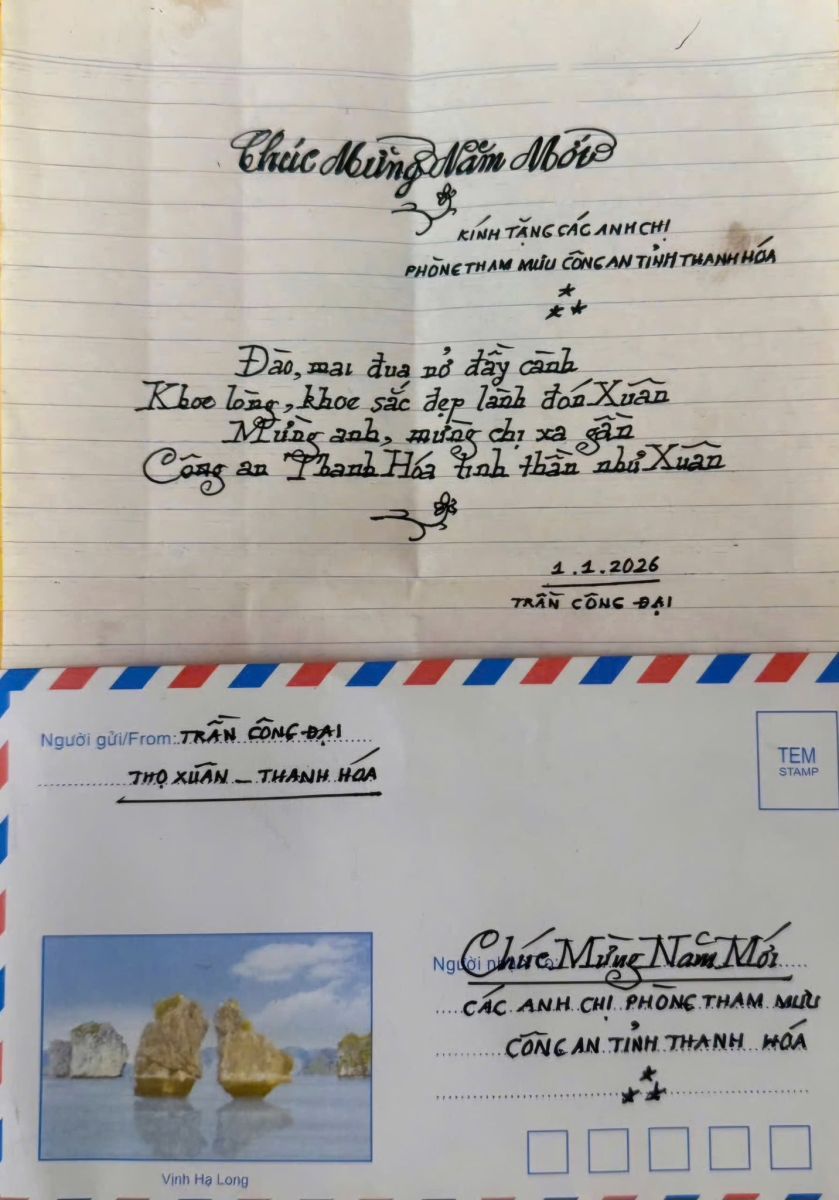 Chúc Mừng Năm Mới
KÍNH TẶNG CÁC ANH CHỊ
PHÒNG THAM MƯU CÔNG AN TỈNH THANH HÓA
Đào, mai đua nở đầy cành
Khoe lòng, khoe sắc đẹp lành đón Xuân
Mừng anh, mừng chị xa gần
Công an Thanh Hóa tinh thần như Xuân
1.1.2026
TRẦN CÔNG ĐẠI
Người gửi/From: TRẦN CÔNG ĐẠI
THỌ XUÂN - THANH HÓA
TEM
STAMP
Chúc Mừng Năm Mới
Người
CÁC ANH CHỊ PHÒNG THAM MƯU
CÔNG AN TỈNH THANH HÓA
Vịnh Hạ Long